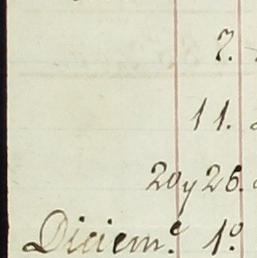 7.
11.
20 y 26.
Diciem.e 1.o